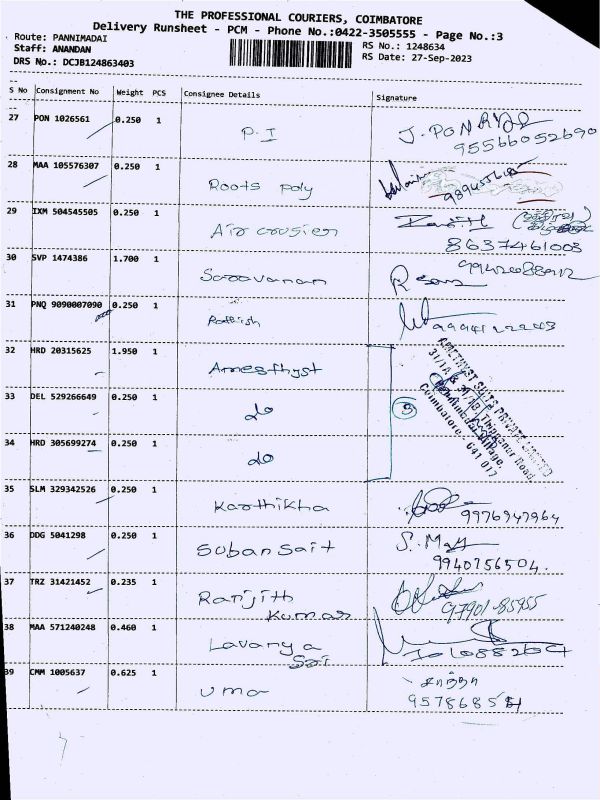 THE PROFESSIONAL COURIERS, COIMBATORE
Delivery Runsheet - PCM - Phone No.:0422-3505555 - Page No.:3
Route: PANNIMADAI
RS No.: 1248634
Staff: ANANDAN
RS Date: 27-Sep-2023
DRS No.: DCJB124863403
S No Consignment No Weight PCS Consignee Details Signature
27 PON 1026561 0.250 1 P.I J. PON
28 MAA 105576307 0.250 1 Roots poly
29 IXM 504545505 0.250 1 Air cousier 8637461003
30 SVP 1474386 1.700 1 Saravanan R
31 PNQ 9090007090 0.250 1 Rathish
32 HRD 20315625 1.950 1 Amesthyst
33 DEL 529266649 0.250 1 do 3
34 HRD 305699274 0.250 1 do
AMETHYST SUITS PRIVATE LIMITED
Thippanur Road,
Village,
Coimbatore - 641 017
35 SLM 329342526 0.250 1 Karthikha 9976947964
36 DDG 5041298 0.250 1 Suban Sait S. 9940756504.
37 TRZ 31421452 0.235 1 Ranjith Kumar 97901-85955
38 MAA 571240248 0.460 1 Lavanya Sai
39 CMM 1005637 0.625 1 Uma